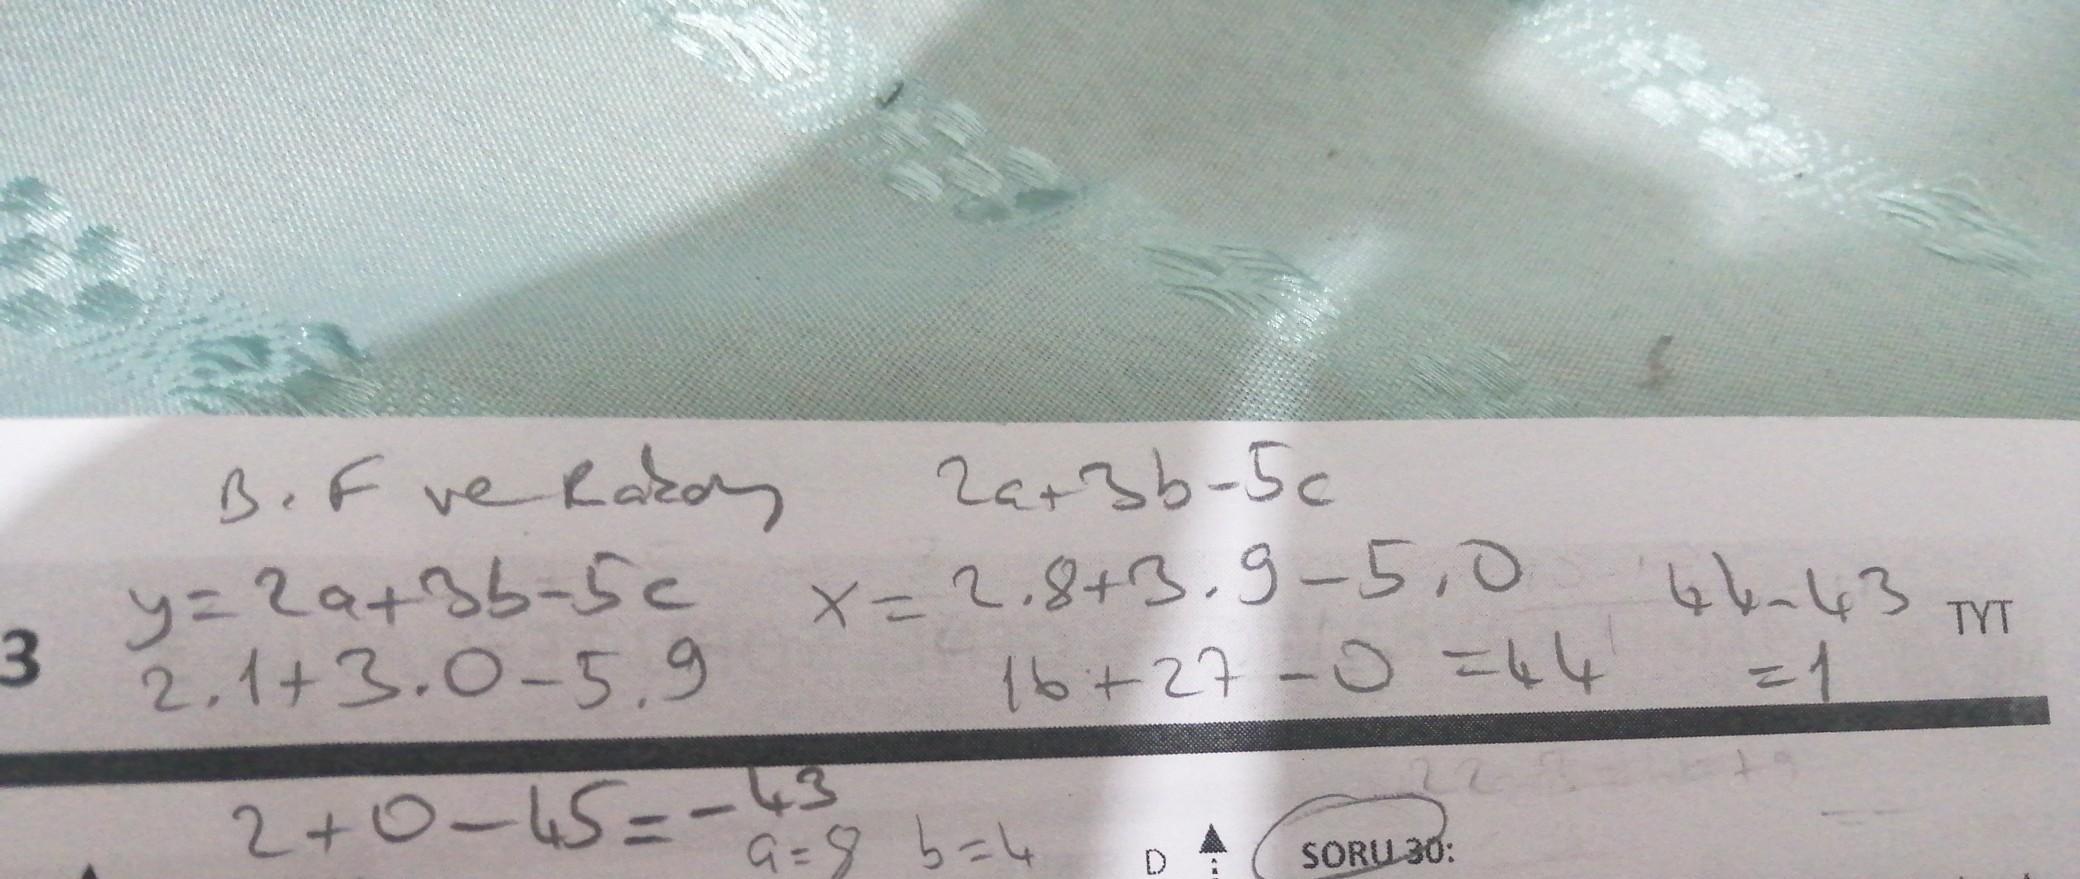 B.F ve Rakam 2a+3b-5c
y=2a+3b-5c x=2.8+3.9-5.0 44-43
3 2.1+3.0-5.9 16+27-0=44 =1 TYT
2+0-45=-43
a=8 b=4 D SORU 30: